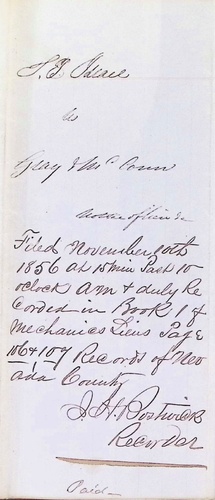 vs
Gray & McConn
Notice of Lien &c
Filed November 10th
1856 at 15 min Past 10
oclock Am & duly Re
corded in Book 1 of
Mechanics Liens Page
106 & 107 Records of Nev
ada County
J. H. Bostwick
Recorder
Paid